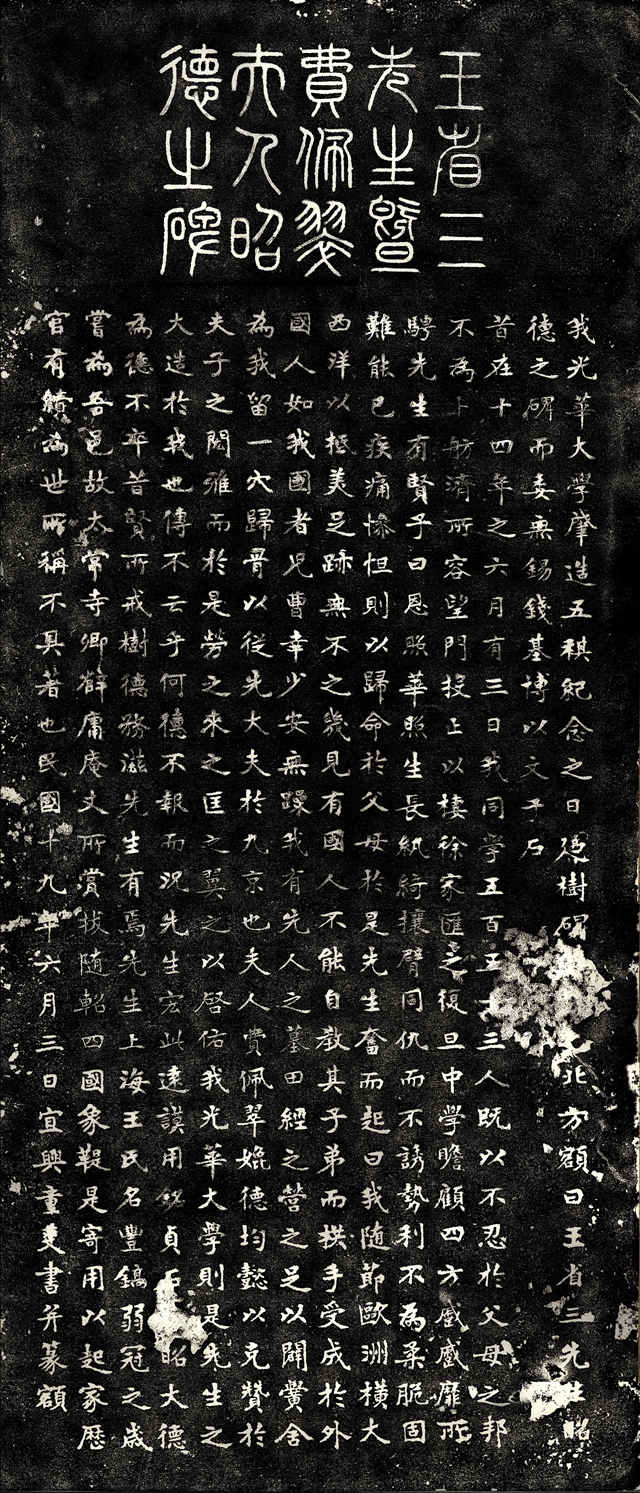 王省三
先生暨
費佩翠
夫人昭
德之碑
我光華大學肇造五稘紀念之日逑樹碑北方額曰王省三先生昭
德之碑而委無錫錢基博以文予石
昔在十四年之六月有三日我同學五百五十三人既以不忍於父母之邦
不為上舫濟所容望門投止以棲徐家匯之復旦中學瞻顧四方戲戲靡所
騁先生有賢子曰恩照華照生長紈綺攘臂同仇而不誘勢利不為柔脆固
難能已疾痛慘怛則以歸命於父母於是先生奮而起曰我隨節歐洲橫大
西洋以抵美足跡無不之幾見有國人不能自教其子弟而拱手受成於外
國人如我國者兄曹幸少安無躁我有先人之墓田經之營之足以闢黌舍
為我留一穴歸骨以從先大夫於九京也夫人費佩翠媲德均懿以克贊於
夫子之閎雅而於是勞之來之匡之翼之以啓佑我光華大學則是先生之
大造於我也傳不云乎何德不報而況先生宏此遠謨用銘貞石昭大德
為德不卒昔賢所戒樹德務滋先生有焉先生上海王氏名豐鎬弱冠之歲
嘗為吾邑故太常寺卿薛庸庵丈所賞拔隨軺四國象鞮是寄用以起家歷
官有績為世所稱不具著也民國十九年六月三日宜興童斐書并篆額